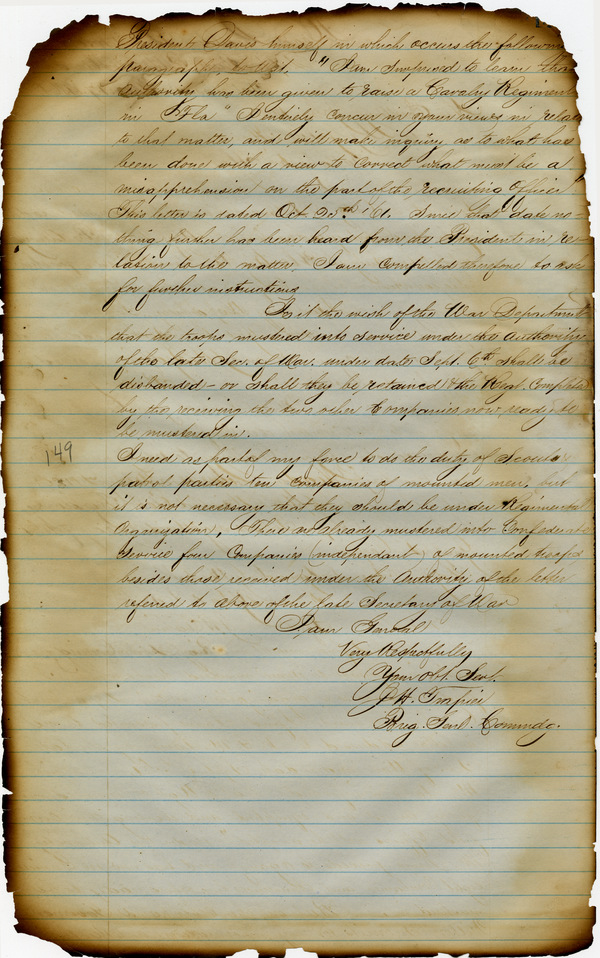 President Davis himself in which occurs the following
paragraph, to wit, "I am surprised to learn that
authority has been given to raise a Cavalry Regiment
in "Fla" I entirely concur in your views in relation
to that matter, and will make inquiry as to what has
been done with a view to correct what must be a
misapprehension on the part of the recruiting Officer"
This letter is dated Oct. 25th /61. Since that date no-
thing further has been heard from the President in re-
lation to the matter, I am compelled therefore to ask
for further instructions
Is it the wish of the War Department
that the troops mustered into service under the authority
of the late Sec. of War. under date Sept. 6th shall be
disbanded - or shall they be retained & the Regt. Completed
by the receiving the two other Companies now ready to
be mustered in.
149
I need as part of my force to do the duty of Scouts &
patrol parties ten companies of mounted men, but
it is not necessary that they should be under Regimental
Organization, I have already mustered into Confederate
Service four Companies (independant) of mounted troops
besides those received under the Authority of the letter
referred to above of the late Secretary of War
I am General
Very Respectfully
Your Obt. Svt.
J H. Trapier
Brig. Genl. Commdg.